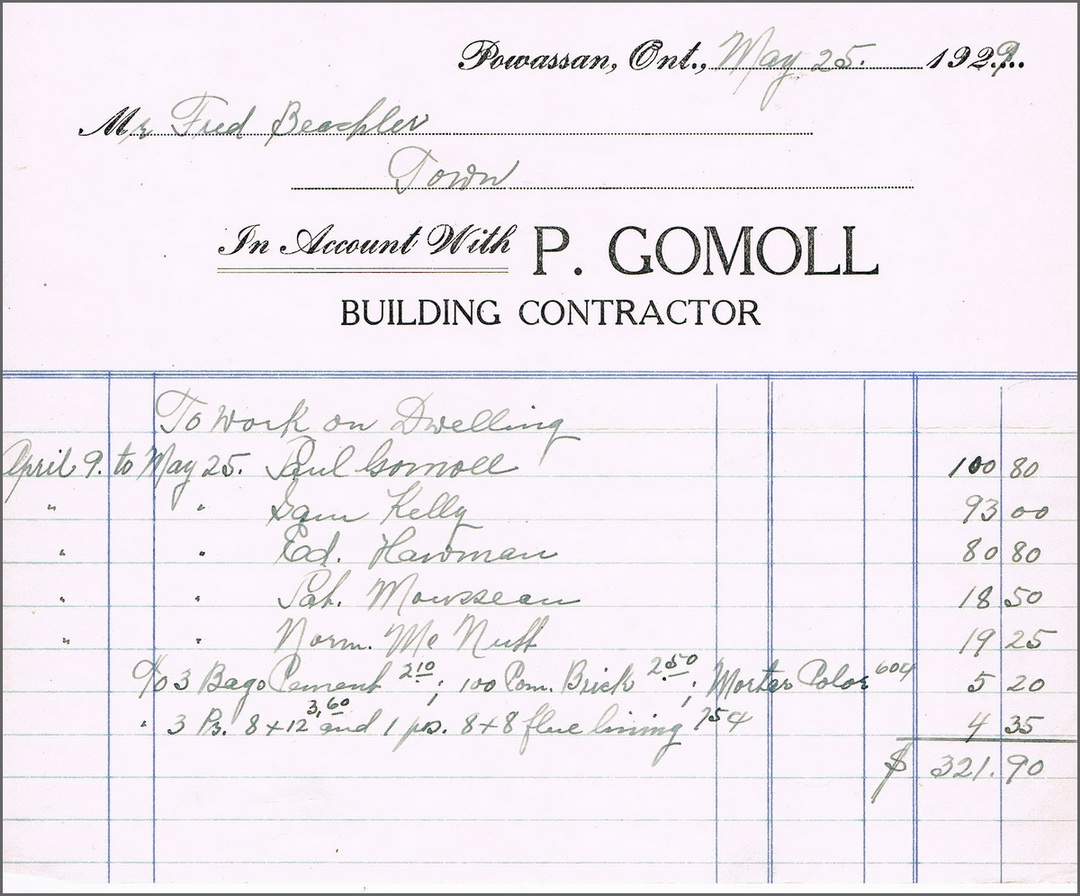 Powassan, Ont., May 25. 1929.
Mr Fred Beachler
Town
In Account With P. GOMOLL
BUILDING CONTRACTOR
To work on Dwelling
April 9. to May 25. Paul Gomoll 100 80
" " Sam Kelly 93 00
" " Ed. Hawman 80 80
" " Pat. Mousseau 18 50
" " Norm. Mc Nutt 19 25
To 3 Bags Cement 2 10; 100 Com. Brick 2.50; Morter Color 60¢ 5 20
" 3 Ps. 8+12 3,60 and 1 ps. 8+8 flue lining 75¢ 4 35
$ 321.90